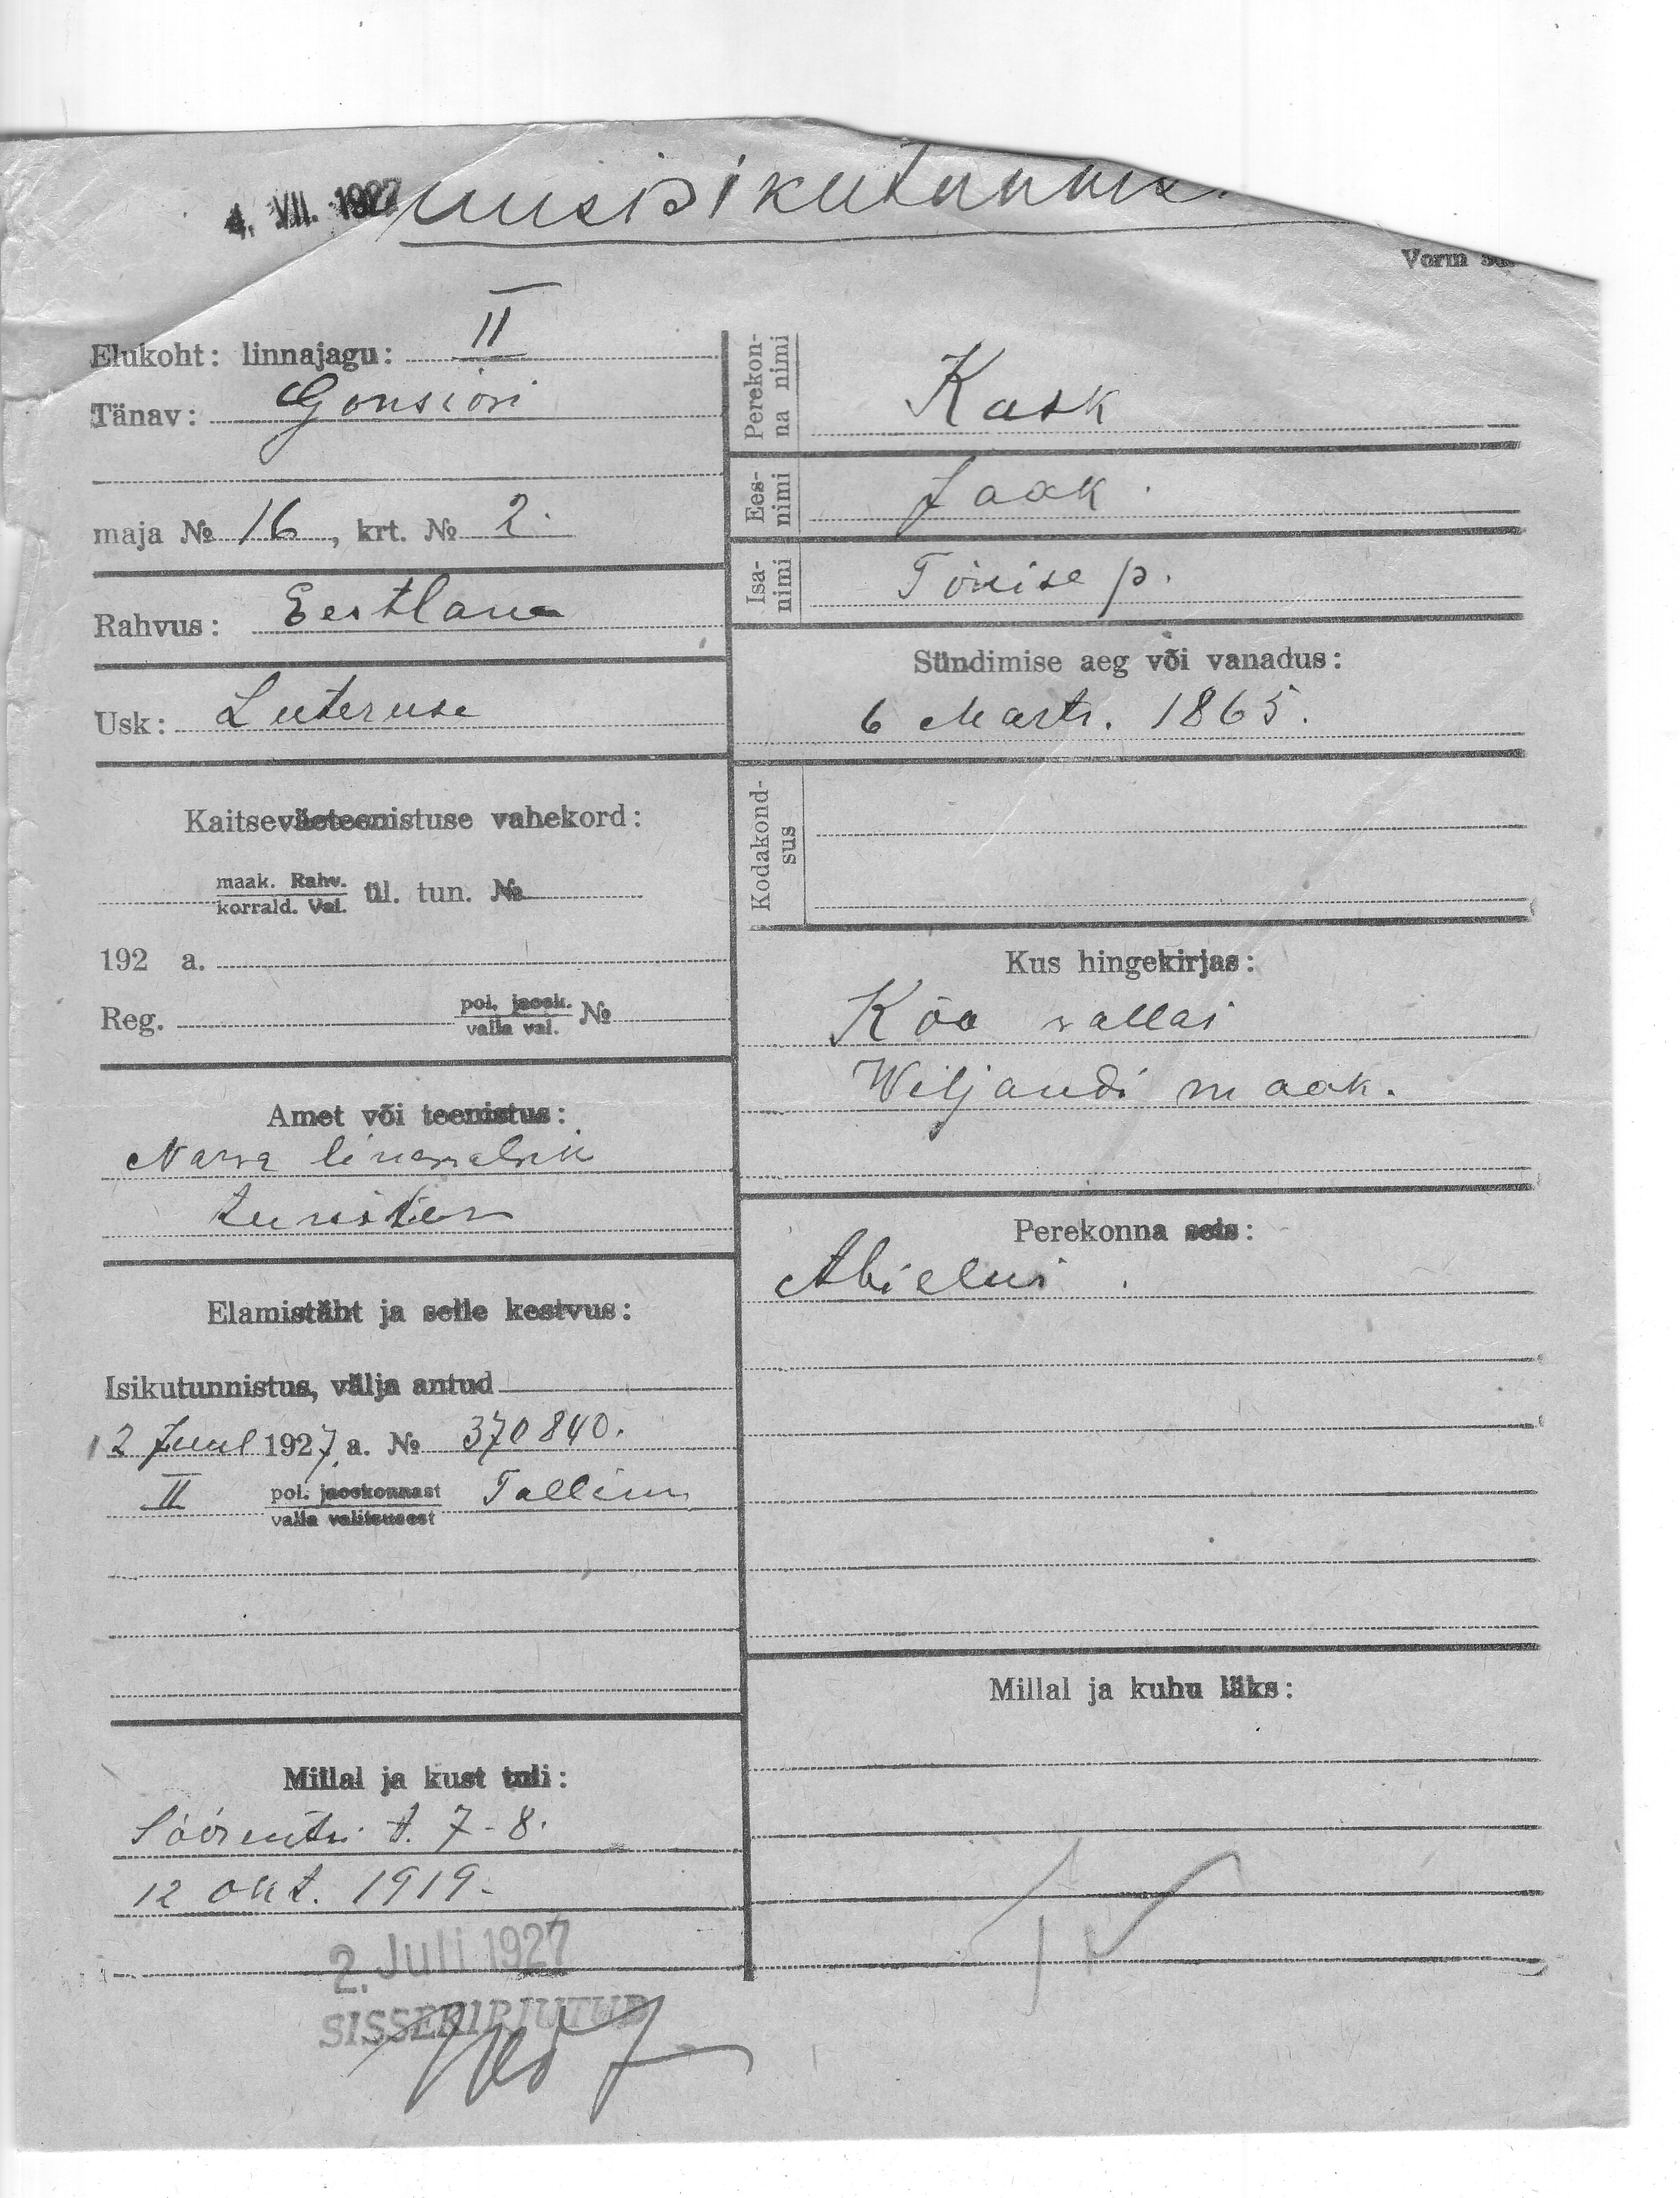 4. VII. 1927 uus isikutunnis
Vorm
Elukoht: linnajagu: II
Tänav: Gonsiori
maja № 16, krt. № 2.
Rahvus: Eestlane
Usk: Luteruse
Kaitseväeteenistuse vahekord:
maak. Rahv.
korrald. Val. ül. tun. №
192 a.
Reg. pol. jaosk.
valla val. №
Amet või teenistus:
Narva
Elamistäht ja selle kestvus:
Isikutunnistus, välja antud
12 Juul 1927. a. № 370840.
II pol. jaoskonnast Tallinn
valla valitsusest
Millal ja kust tuli:
t. 7-8.
12 okt. 1919.
2. Juli 1927
SISSEKIRJUTUD
Perekonna nimi Kask
Eesnimi Jaak.
Isanimi Tõnise p.
Sündimise aeg või vanadus:
6 Märts. 1865.
Kodakondsus
Kus hingekirjas:
Kõo vallas
Wiljandi maak.
Perekonna seis:
Abielus.
Millal ja kuhu läks: